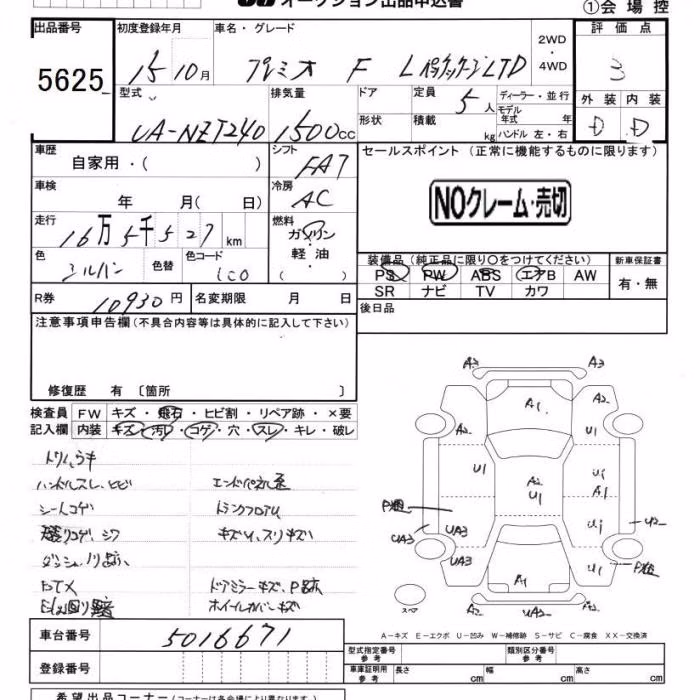 オークション出品申込書
①会場控
出品番号 初度登録年月 車名・グレード 評価点
5625 15 10月 プレミオ F Lパッケージ LTD 2WD・4WD 3
型式 排気量 ドア 定員 ディーラー・並行 外装 内装
UA-NZT240 1500cc 5人 モデル年式 年 D D
形状 積載 kg ハンドル 左・右
車歴 シフト セールスポイント (正常に機能するものに限ります)
自家用・( ) FAT
車検 冷房 NOクレーム・売切
年 月( 日) AC
走行 燃料
16万5千527km ガソリン
軽油
( )
色 色替 色コード 装備品(純正品に限り○をつけてください) 新車保証書
シルバー 1C0 PS PW ABS エアB AW 有・無
SR ナビ TV カワ
R券 10930円 名変期限 月 日 後日品
注意事項申告欄(不具合内容等は具体的に記入して下さい)
修復歴 有 〔箇所 〕
検査員 FW キズ・飛石・ヒビ割・リペア跡・×要
記入欄 内装 キズ・汚レ・コゲ・穴・スレ・キレ・破レ
ハンドルスレ、ヒビ
シートコゲ トランクフロアU
キズU、スリキズ
ドアミラーキズ、P
ホイールカバーキズ
A3 A3
A1
A2 U1
U1 A2 U1 U1 A1
UA3 U1 U2
UA3 UA3 U1
A1
A2 UA2 A2
スペア
A-キズ E-エクボ U-凹み W-補修跡 S-サビ C-腐食 XX-交換済
車台番号 5016671
型式指定番号 参考 類別区分番号 参考
登録番号 車庫証明用 参考 長さ cm 幅 cm 高さ cm
希望出品コーナー(コーナーは各会場により異なります)